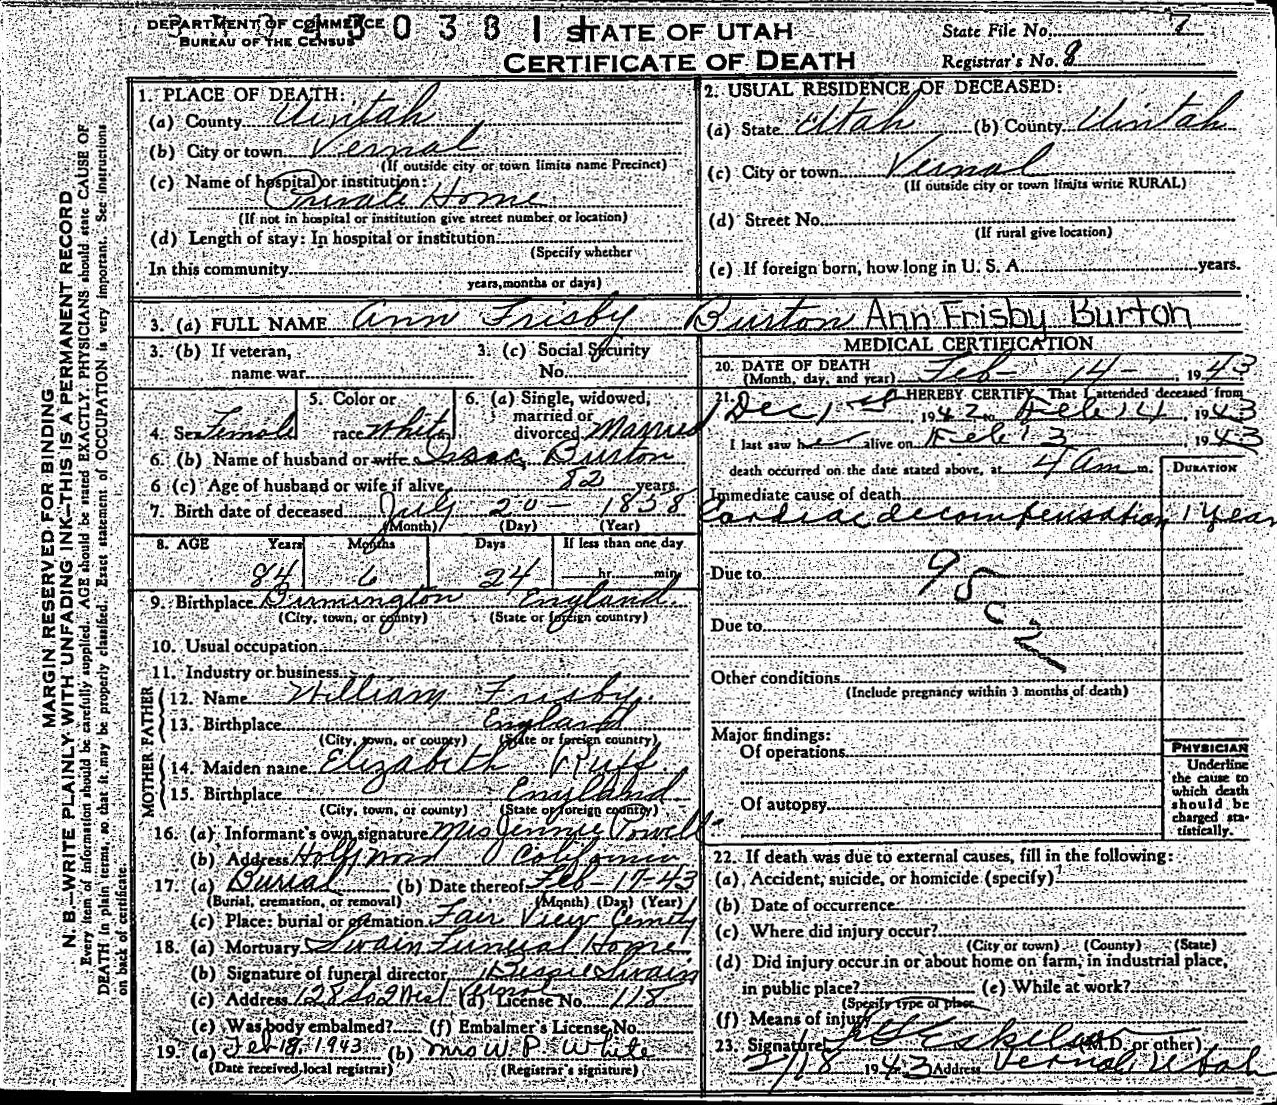 DEPARTMENT OF COMMERCE
BUREAU OF THE CENSUS
STATE OF UTAH
CERTIFICATE OF DEATH
State File No. 7
Registrar's No. 8
MARGIN RESERVED FOR BINDING
N. B.—WRITE PLAINLY WITH UNFADING INK—THIS IS A PERMANENT RECORD
Every item of information should be carefully supplied. AGE should be stated EXACTLY. PHYSICIANS should state CAUSE OF
DEATH in plain terms, so that it may be properly classified. Exact statement of OCCUPATION is very important. See instructions
on back of certificate.
1. PLACE OF DEATH:
(a) County Uintah
(b) City or town Vernal
(If outside city or town limits name Precinct)
(c) Name of hospital or institution:
Private Home
(If not in hospital or institution give street number or location)
(d) Length of stay: In hospital or institution
(Specify whether
In this community
years, months or days)
2. USUAL RESIDENCE OF DECEASED:
(a) State Utah (b) County Uintah
(c) City or town Vernal
(If outside city or town limits write RURAL)
(d) Street No.
(If rural give location)
(e) If foreign born, how long in U. S. A. years.
3. (a) FULL NAME Ann Frisby Burton Ann Frisby Burton
3. (b) If veteran,
name war
3. (c) Social Security
No.
4. Sex Female
5. Color or
race White
6. (a) Single, widowed,
married or
divorced Married
6. (b) Name of husband or wife Isaac Burton
6 (c) Age of husband or wife if alive 82 years.
7. Birth date of deceased July 20 - 1858
(Month) (Day) (Year)
8. AGE Years Months Days If less than one day
84 6 24 hr. min.
9. Birthplace Birmington England
(City, town, or county) (State or foreign country)
10. Usual occupation
11. Industry or business
FATHER
12. Name William Frisby
13. Birthplace England
(City, town, or county) (State or foreign country)
MOTHER
14. Maiden name Elizabeth Ruff
15. Birthplace England
(City, town, or county) (State or foreign country)
16. (a) Informant's own signature Mrs Jennie Powell
(b) Address Hollywood California
17. (a) Burial (b) Date thereof Feb-17-43
(Burial, cremation, or removal) (Month) (Day) (Year)
(c) Place: burial or cremation Fair View
18. (a) Mortuary Swain Funeral Home
(b) Signature of funeral director Bessie Swain
(c) Address 128 So 2 West Vernal (d) License No. 118
(e) Was body embalmed? (f) Embalmer's License No.
19. (a) Feb 18, 1943 (b) Mrs W. P. White
(Date received local registrar) (Registrar's signature)
MEDICAL CERTIFICATION
20. DATE OF DEATH
(Month, day, and year) Feb - 14 - , 1943
21. I HEREBY CERTIFY, That I attended deceased from
Dec 1st 1942 to Feb 14, 1943
I last saw her alive on Feb 13, 1943
death occurred on the date stated above, at 4 am m.
DURATION
Immediate cause of death
Cardiac decompensation 1 year
Due to
95c
Due to
Other conditions
(Include pregnancy within 3 months of death)
Major findings:
Of operations
Of autopsy
PHYSICIAN
Underline
the cause to
which death
should be
charged sta-
tistically.
22. If death was due to external causes, fill in the following:
(a) Accident, suicide, or homicide (specify)
(b) Date of occurrence
(c) Where did injury occur?
(City or town) (County) (State)
(d) Did injury occur in or about home on farm, in industrial place,
in public place? (e) While at work?
(Specify type of place
(f) Means of injury
23. Signature (M.D. or other)
2/18 1943 Address Vernal, Utah